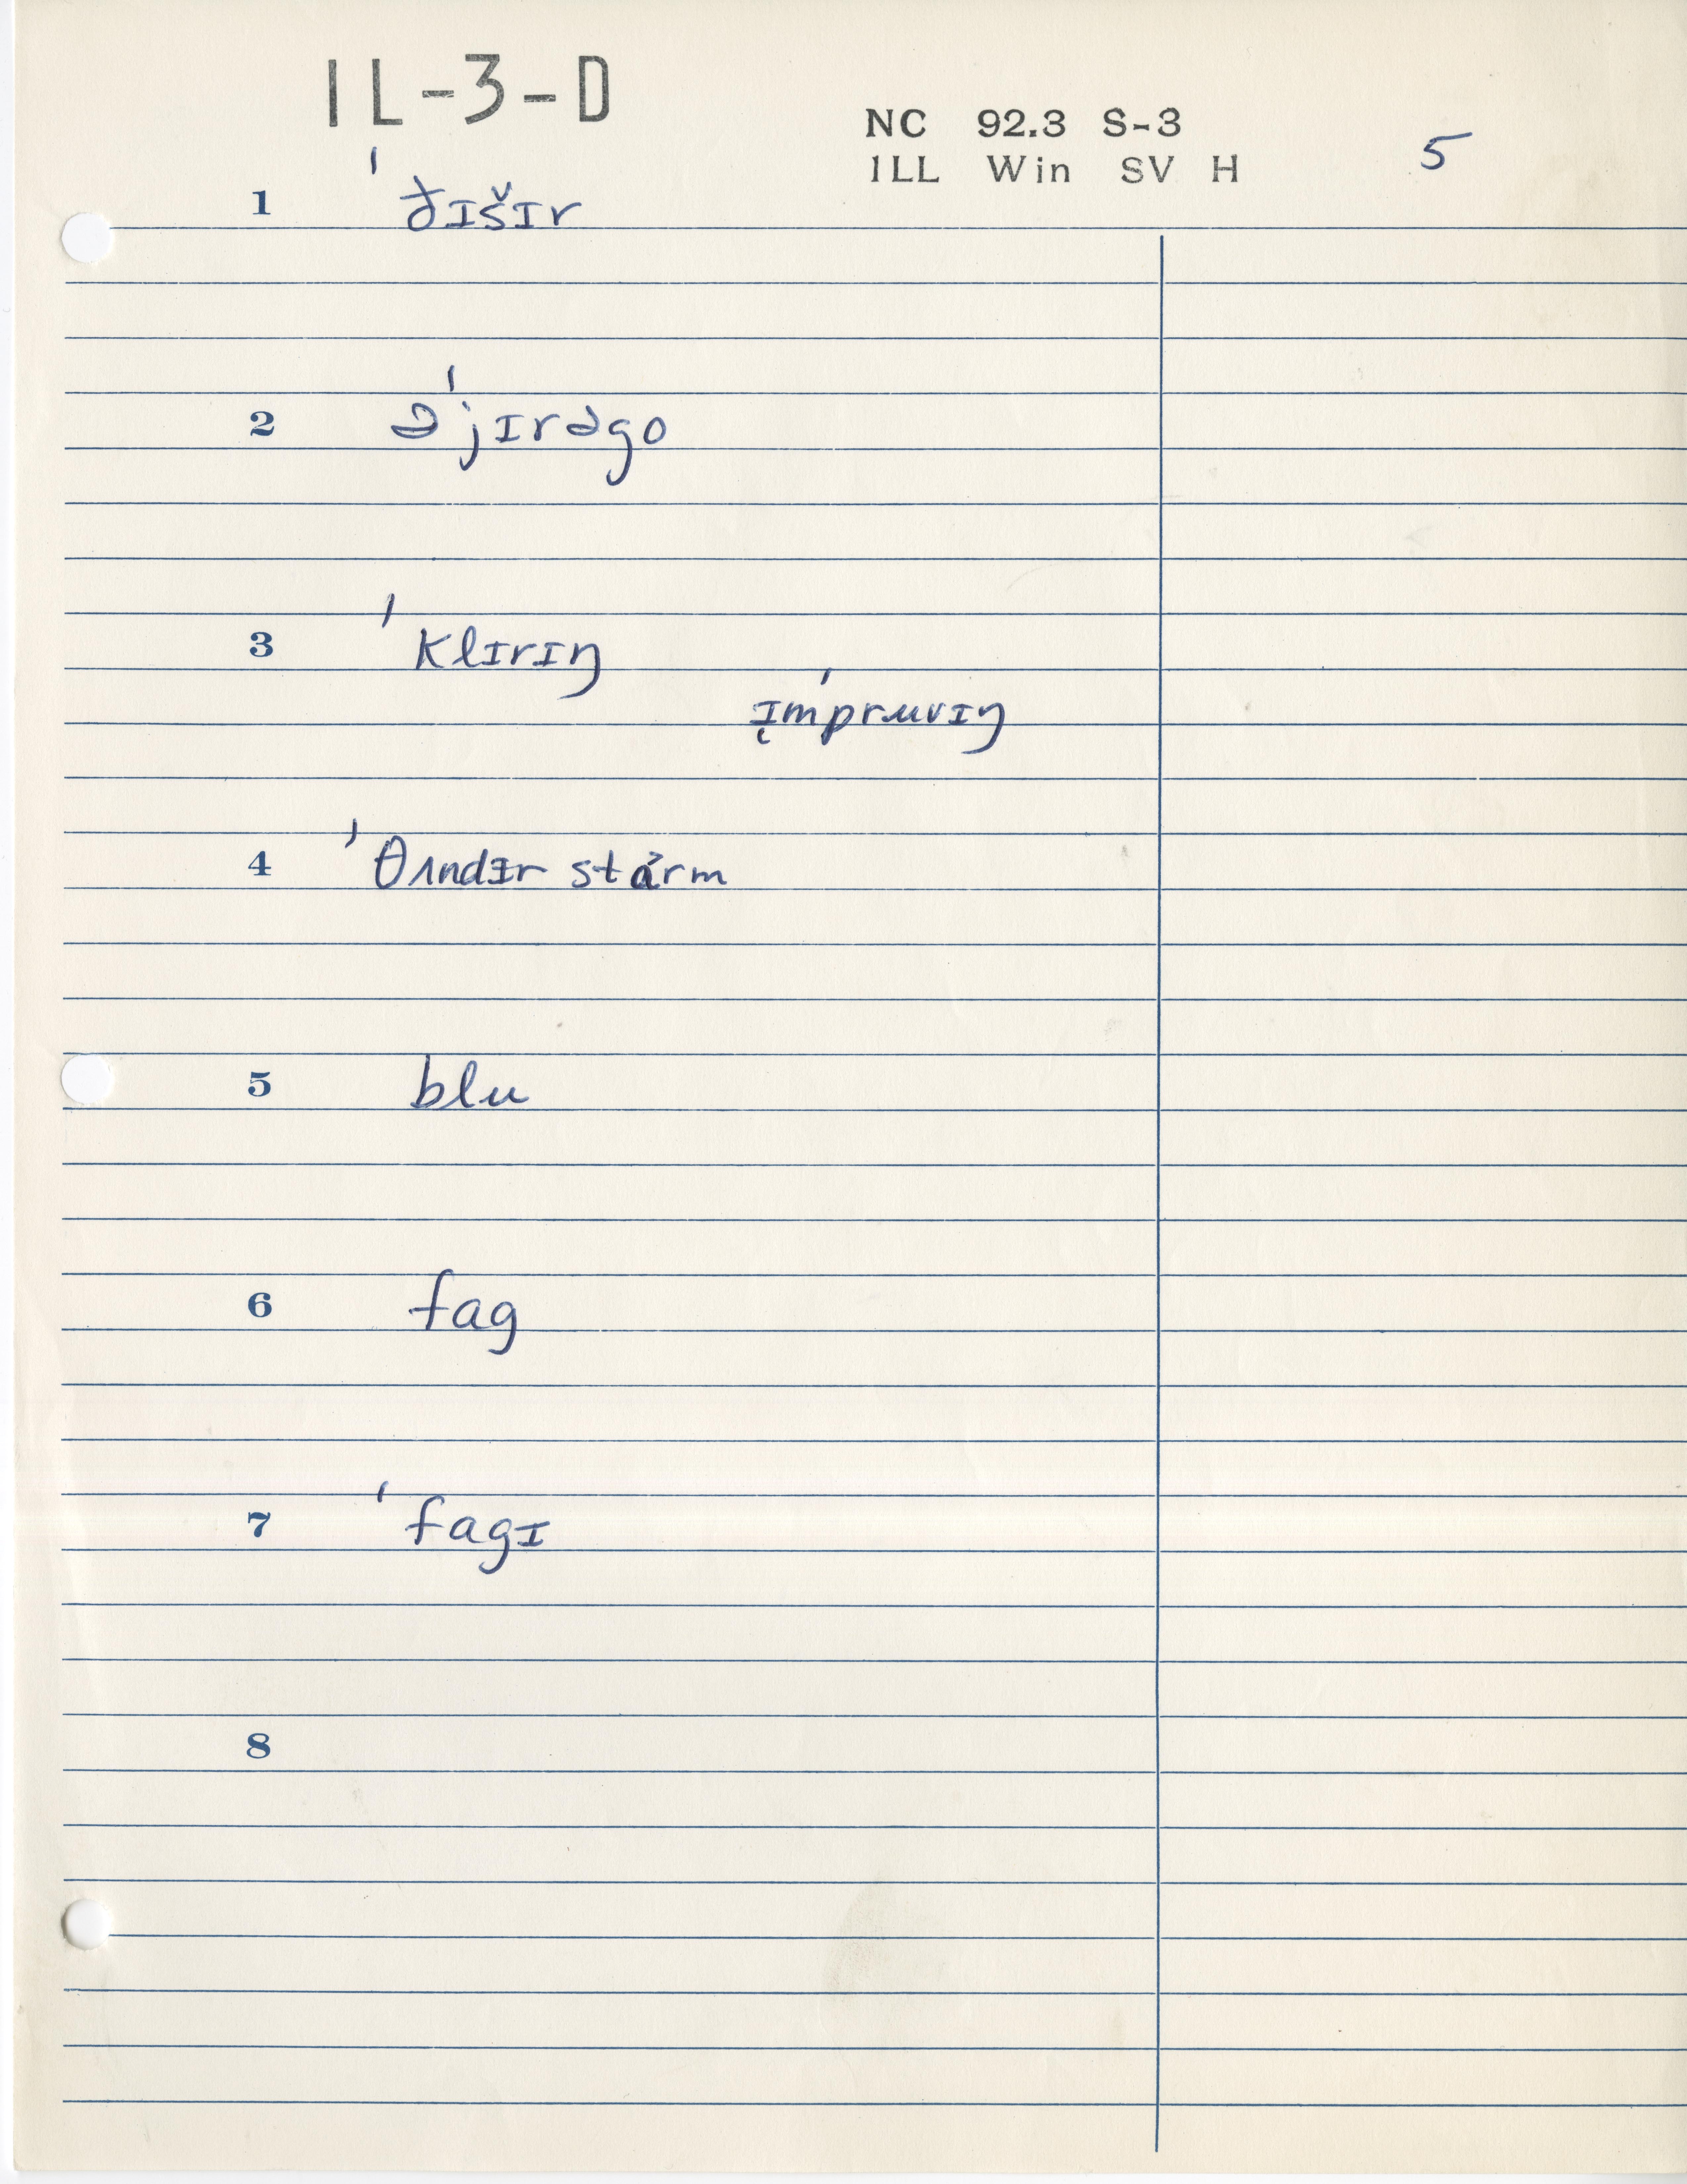 IL-3-D
NC 92.3 S-3
ILL Win SV H 5
1 ˈðɪšɪr
2 əˈjɪrəgo
3 ˈklɪrɪŋ
ɪ̨mˈpruvɪŋ
4 ˈθʌndɪr stɑrm
5 blu
6 fag
7 ˈfagɪ
8